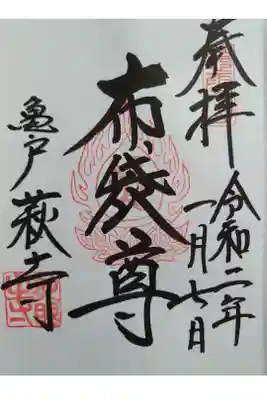 奉拝
令和二年
一月七日
布袋尊
亀戸
萩寺